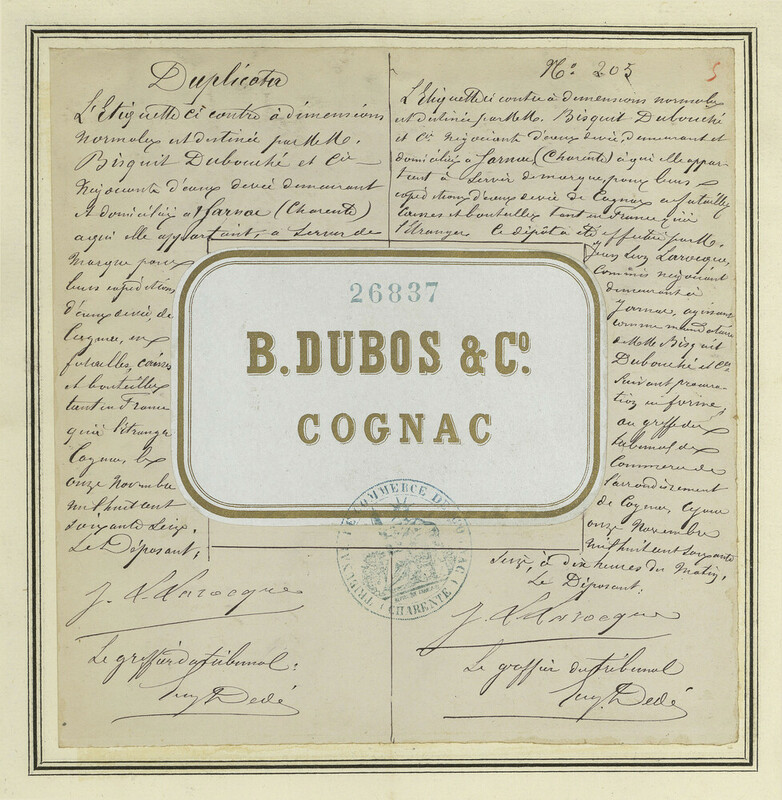 Duplicata
L'Etiquette ci contre à dimensions
normales est destinée par MM.
Bisquit Dubouché et Cie
Négociants d'eaux de vie demeurant
et domiciliés à Jarnac (Charente)
à qui elle appartient, à servir de
Marque pour
leurs expéditions
d'eaux de vie, de
Cognac, en
futailles, caisses
et bouteilles
tant en France
qu'à l'étranger
Cognac, le
onze Novembre
mil huit cent
soixante seize.
Le Déposant,
J. L. Larocque
Le greffier du tribunal:
Dedé
No. 205
5
L'Etiquette ci contre à dimensions normales
est destinée par MM. Bisquit Dubouché
et Cie Négociants d'eaux de vie, demeurant et
domiciliés à Jarnac (Charente) à qui elle appar-
tient à servir de marque, pour leurs
expéditions d'eaux de vie de Cognac en futailles
caisses et bouteilles tant en France qu'à
l'étranger Ce dépôt a été effectué par M.
Jean Léon Larocque,
Commis négociant
demeurant à
Jarnac, agissant
comme mandataire
de MM. Bisquit
Dubouché et Cie
suivant procura-
tion en forme,
au greffe du
tribunal de
Commerce de
l'arrondissement
de Cognac, ce jour
onze Novembre
mil huit cent soixante
seize, à dix heures du matin.
Le Déposant:
J. L. Larocque
Le greffier du tribunal
Dedé
26837
B. DUBOS & Co.
COGNAC
TRIBUNAL DE COMMERCE DE COGNAC (CHARENTE)